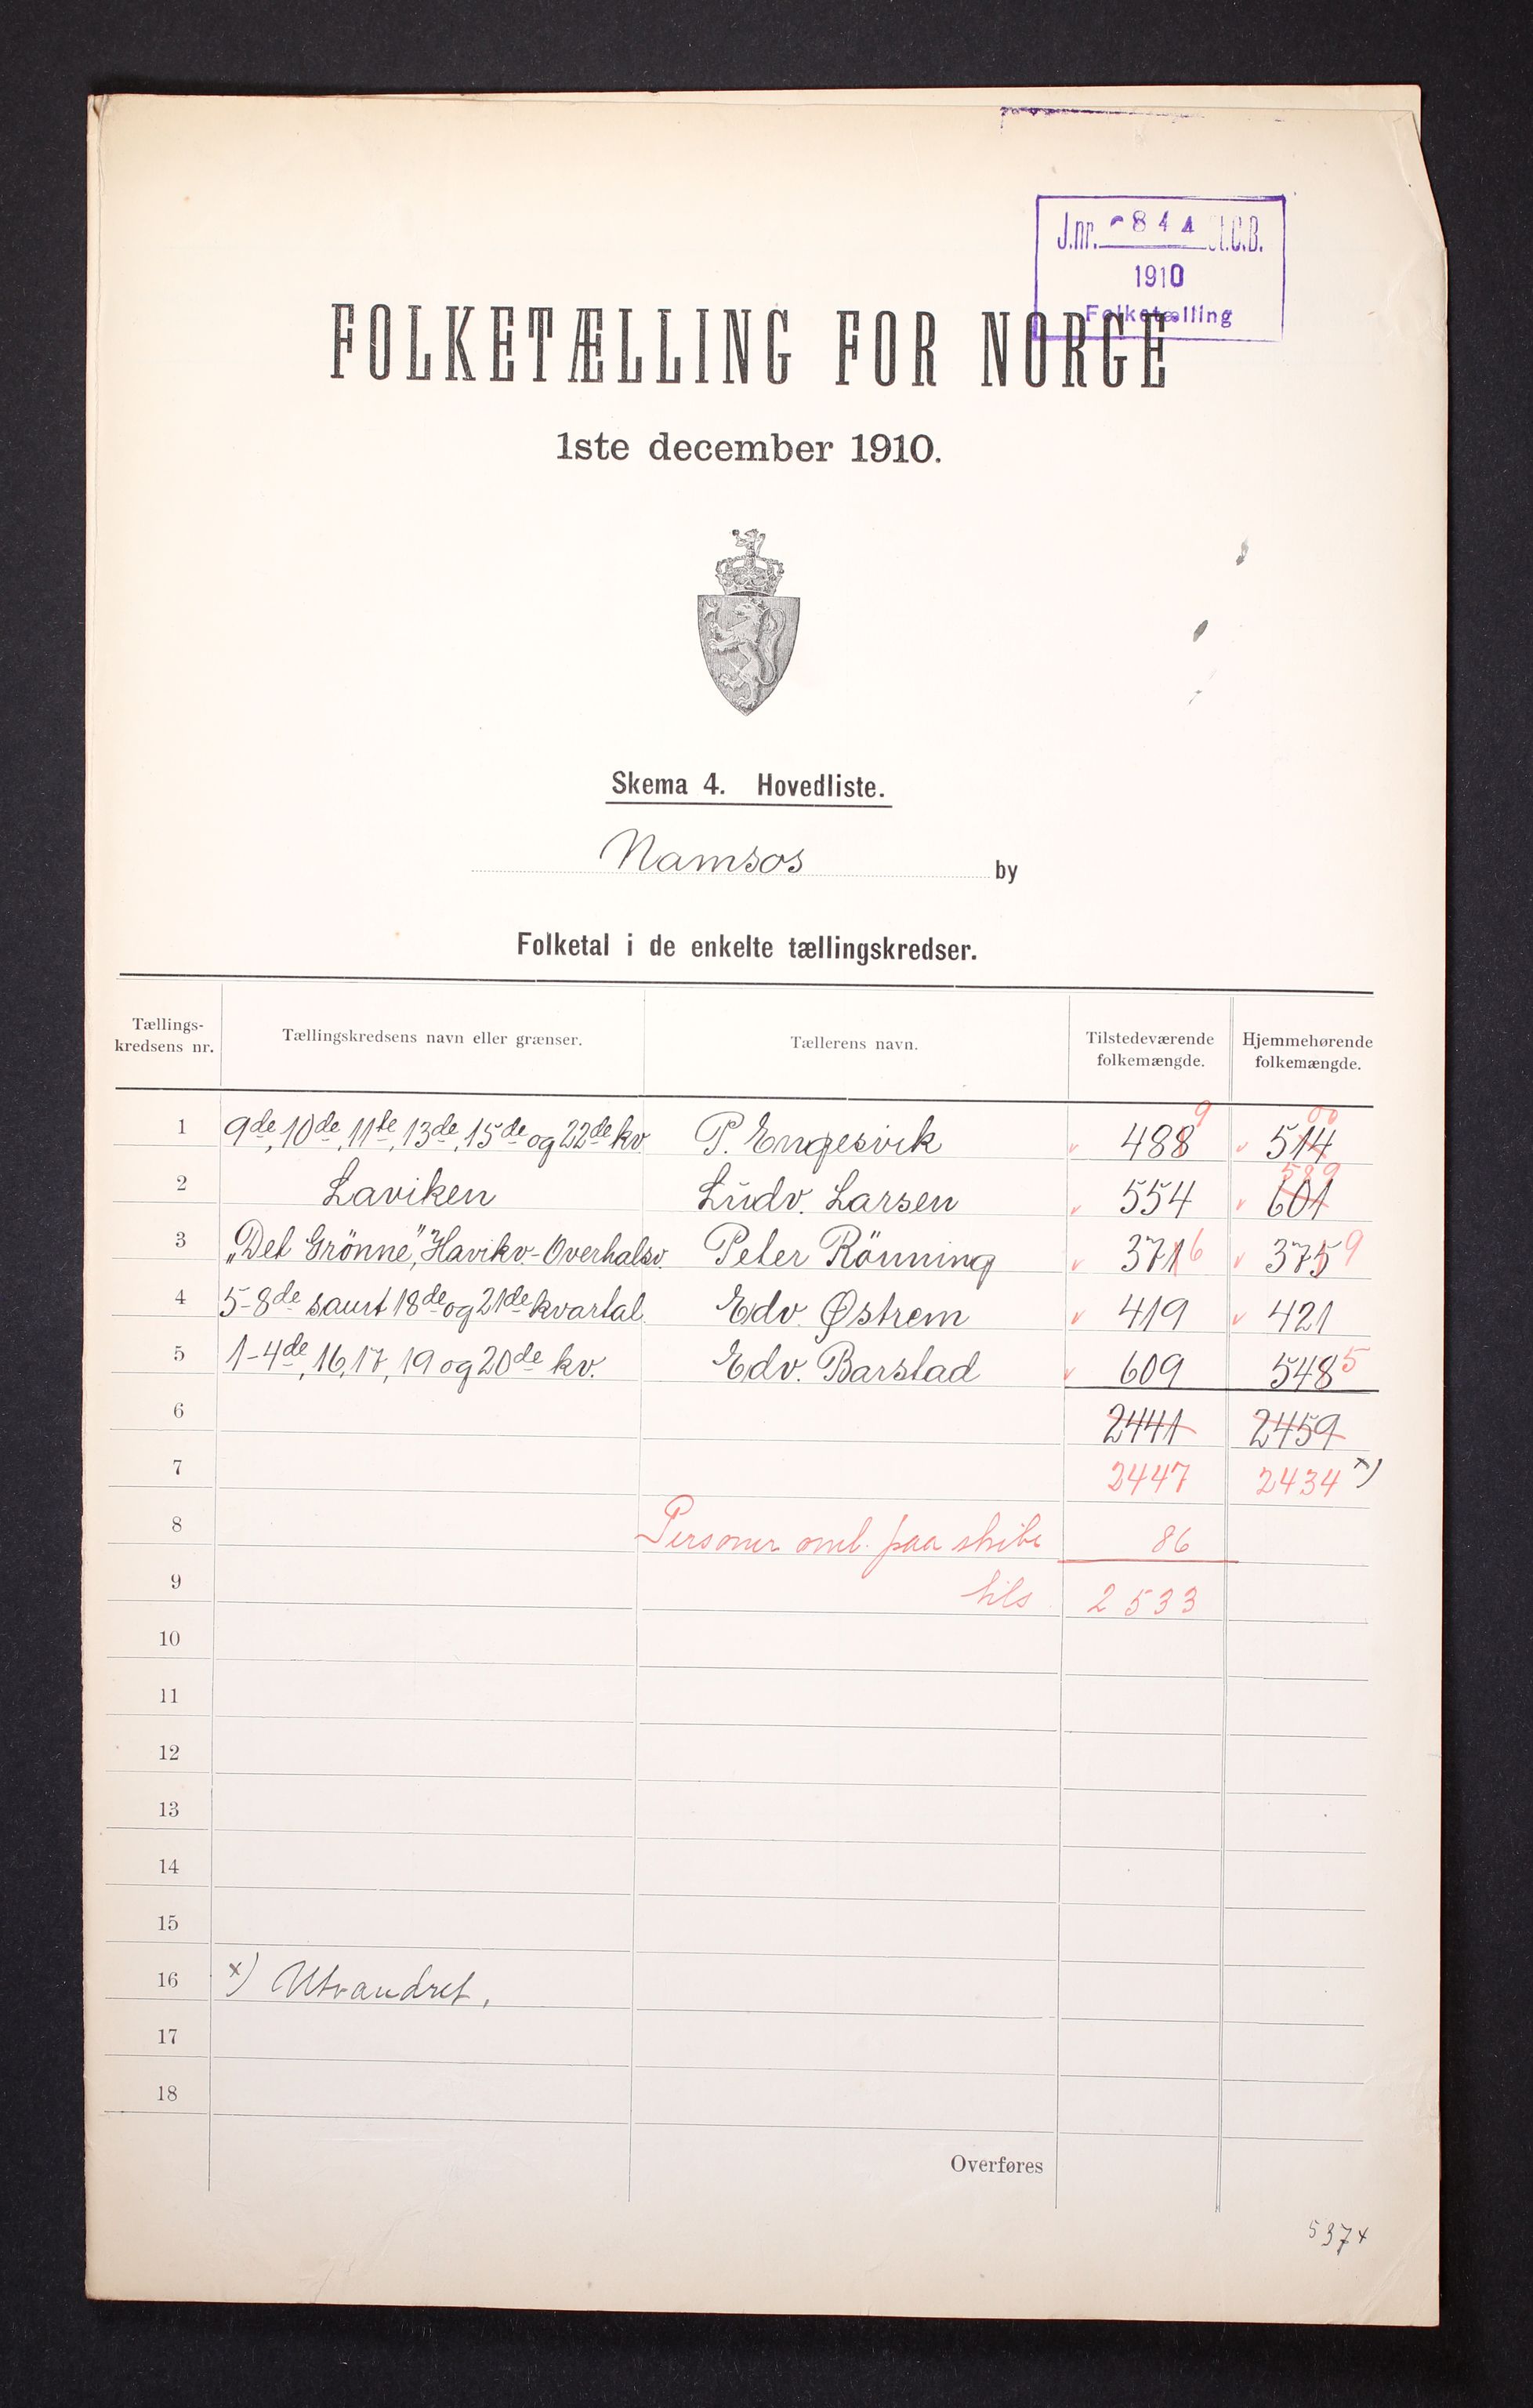 J.nr. 844 St.C.B.
1910
Folketælling
FOLKETÆLLING FOR NORGE
1ste december 1910.
Skema 4. Hovedliste.
Namsos by
Folketal i de enkelte tællingskredser.
Tællings-kredsens nr. Tællingskredsens navn eller grænser. Tællerens navn. Tilstedeværende folkemængde. Hjemmehørende folkemængde.
9 00
1 9de, 10de, 11te, 13de, 15de og 22de kv. P. Engesvik 488 514
589
2 Laviken Ludv. Larsen 554 601
3 „Det Grönne", Havikv.-Overhalsv. Peter Rönning 3716 3759
4 5-8de samt 18de og 21de kvartal. Edv. Østrem 419 421
5 1-4de, 16, 17, 19 og 20de kv. Edv. Barstad 609 5485
6 2441 2459
7 2447 2434 x)
8 Personer omb. paa skibe 86
9 tils. 2533
10
11
12
13
14
15
16 x) Utvandret.
17
18
Overføres
537x